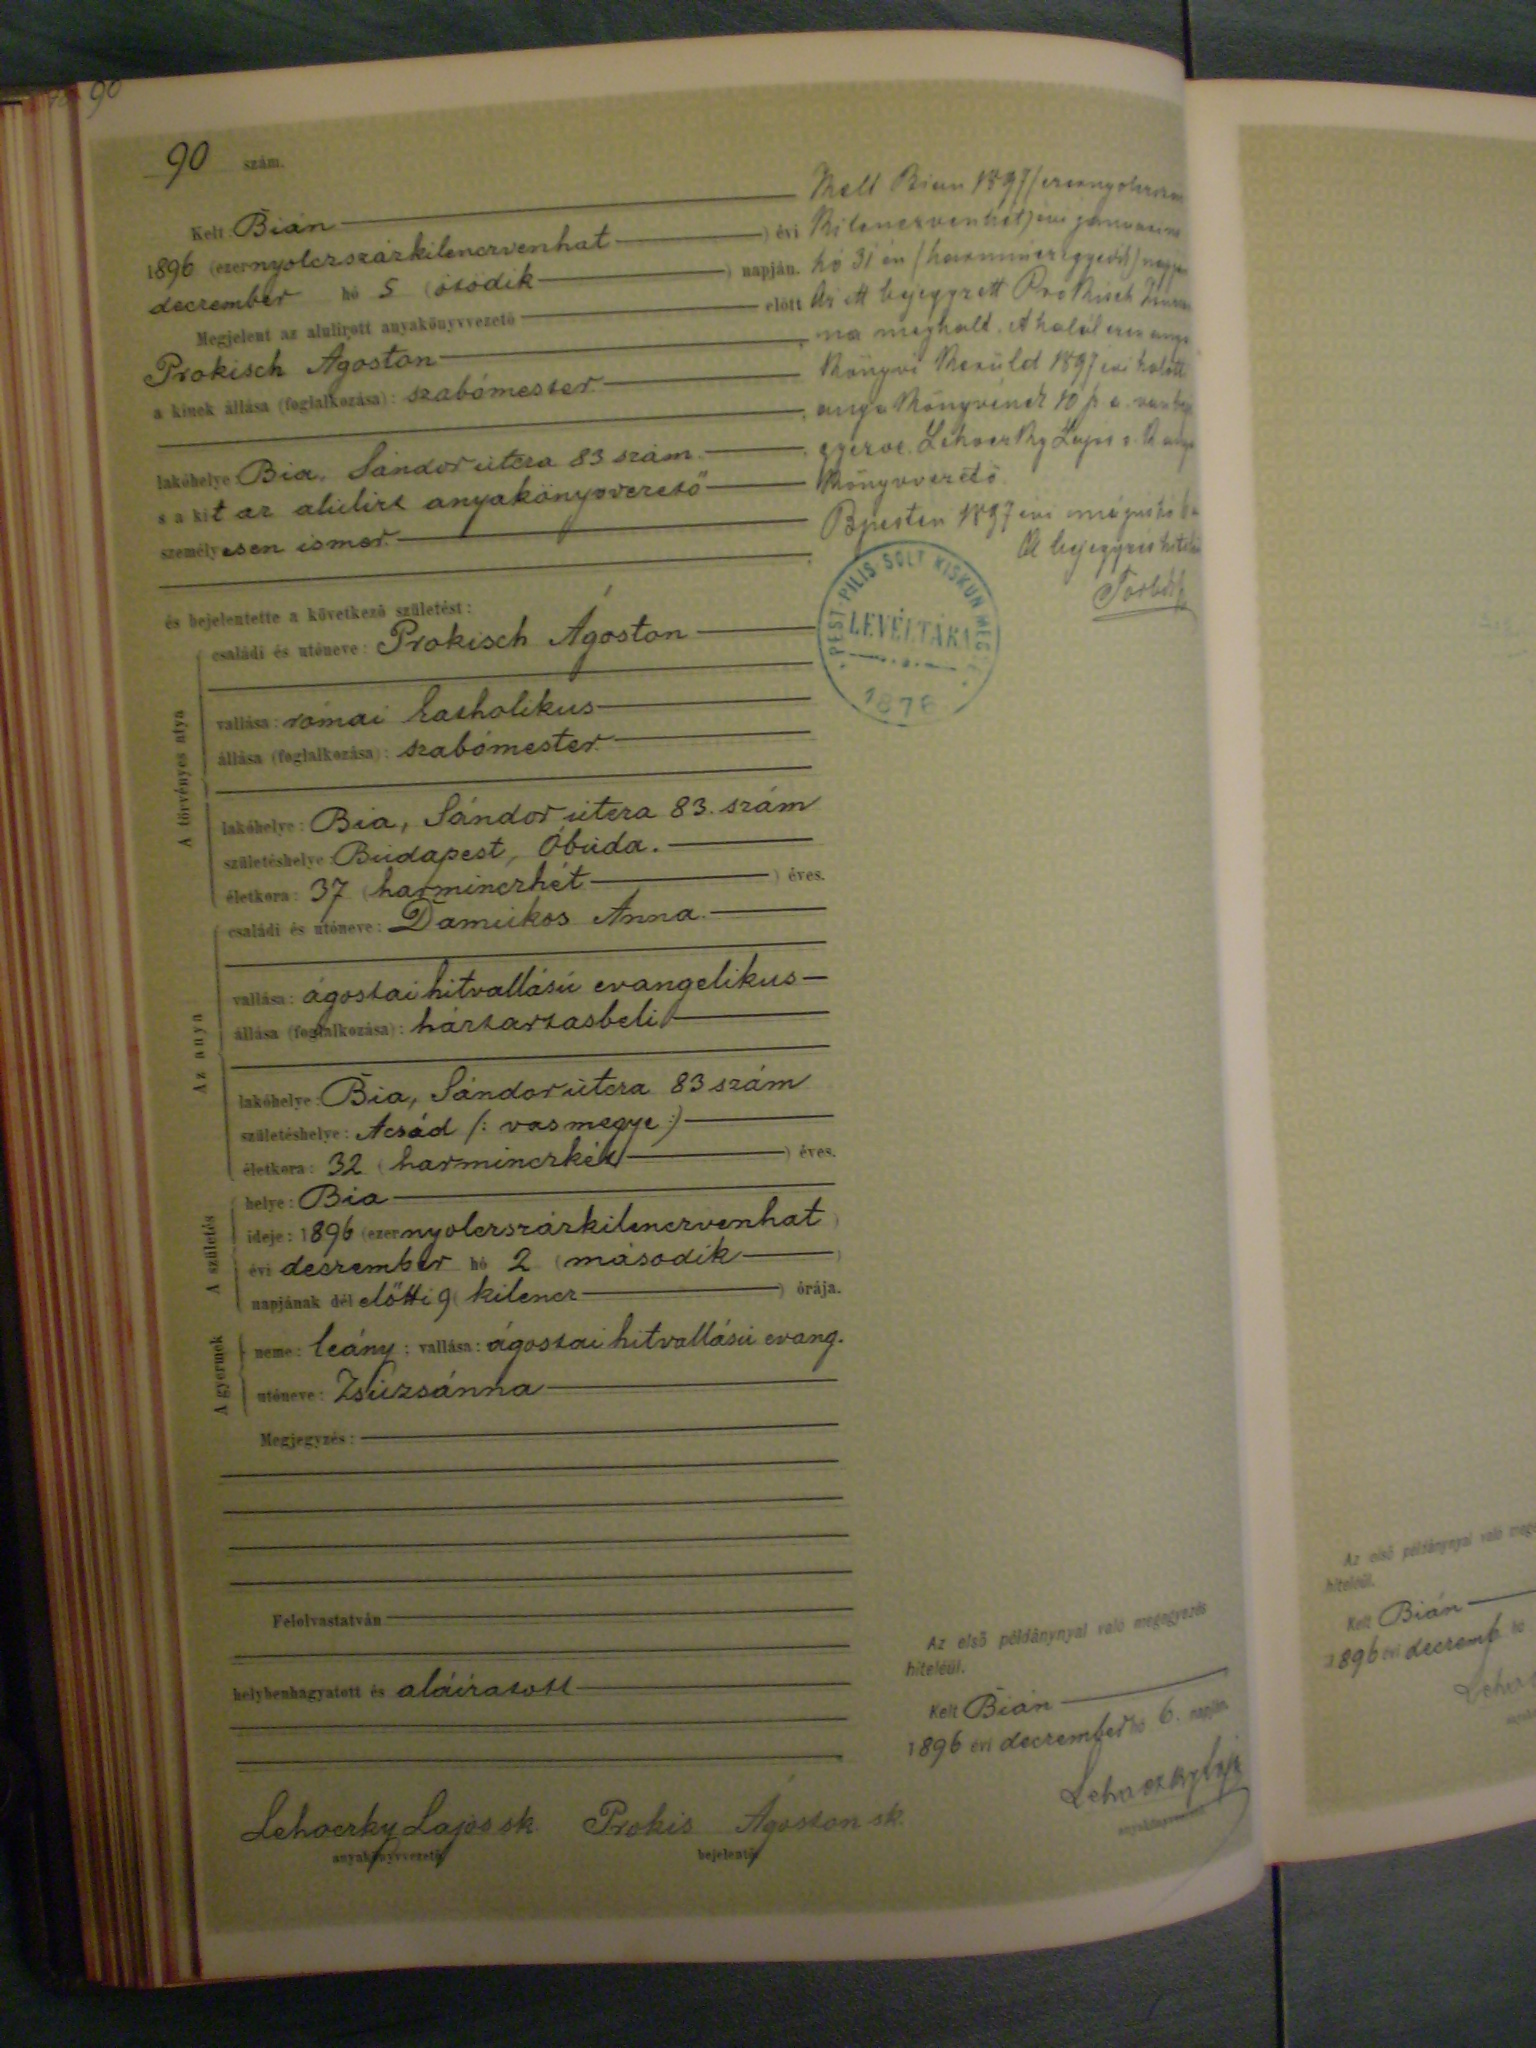 90
90 szám.
Kelt Bián
1896 (ezernyolczszázkilenczvenhat) évi
deczember hó 5 (ötödik) napján.
Megjelent az alulirott anyakönyvvezető előtt
Prokisch Ágoston,
a kinek állása (foglalkozása): szabómester
lakóhelye: Bia, Sándor utcza 83 szám,
s a kit az alulirt anyakönyvvezető
személyesen ismer.
és bejelentette a következő születést:
A törvényes atya
családi és utóneve: Prokisch Ágoston
vallása: római katholikus
állása (foglalkozása): szabómester
lakóhelye: Bia, Sándor utcza 83. szám
születéshelye: Budapest, Óbuda.
életkora: 37 (harminczhét) éves.
Az anya
családi és utóneve: Damukos Anna.
vallása: ágostai hitvallású evangelikus
állása (foglalkozása): háztartásbeli
lakóhelye: Bia, Sándor utcza 83 szám
születéshelye: Acsád (: vasmegye :)
életkora: 32 (harminczkét) éves.
A születés
helye: Bia
ideje: 1896 (ezernyolczszázkilenczvenhat)
évi deczember hó 2 (második)
napjának dél előtti 9 (kilencz) órája.
A gyermek
neme: leány; vallása: ágostai hitvallású evang.
utóneve: Zsuzsánna
Megjegyzés:
Felolvastatván
helybenhagyatott és aláiratott
Lehoczky Lajos sk. Prokis Ágoston sk.
anyakönyvvezető bejelentő
Kelt Bian 1897 (ezernyolczszáz
kilenczvenhét) évi januarius
hó 31 én (harminczegyedik) napján
Az itt bejegyzett Prokisch Zsuzsa
na meghalt. A haláleset anya
könyvi kerület 1897 évi halotti
anyakönyvének 10 f. a. van bej
egyezve. Lehoczky Lajos s. k. anya
könyvvezető.
Bpesten 1897 évi
A bejegyzés hiteléül
PEST-PILIS-SOLT KISKUN MEGYE
LEVÉLTÁRA
1876
Az első példánynyal való megegyezés
hiteléül.
Kelt Bián
1896 évi deczember hó 6. napján.
Lehoczky Lajos
anyakönyvvezető
Az első példánynyal való
hiteléül.
Kelt Bián
1896 évi deczemb. hó